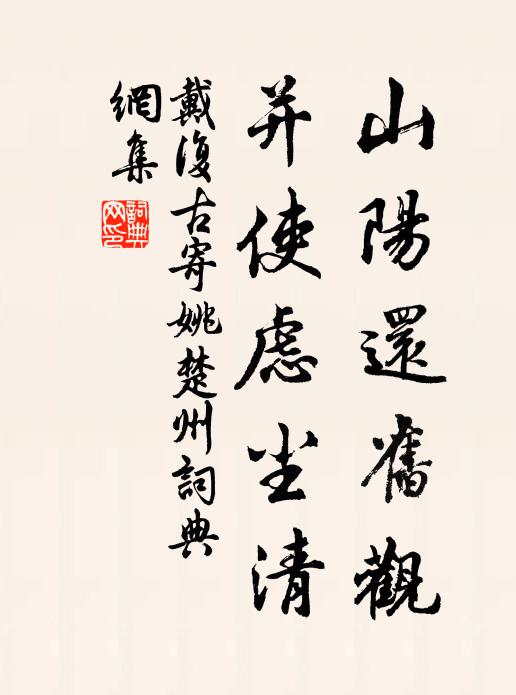 山陽還舊觀
并使虜塵清
戴復古寄姚楚州詞典
網集
詞典
网印